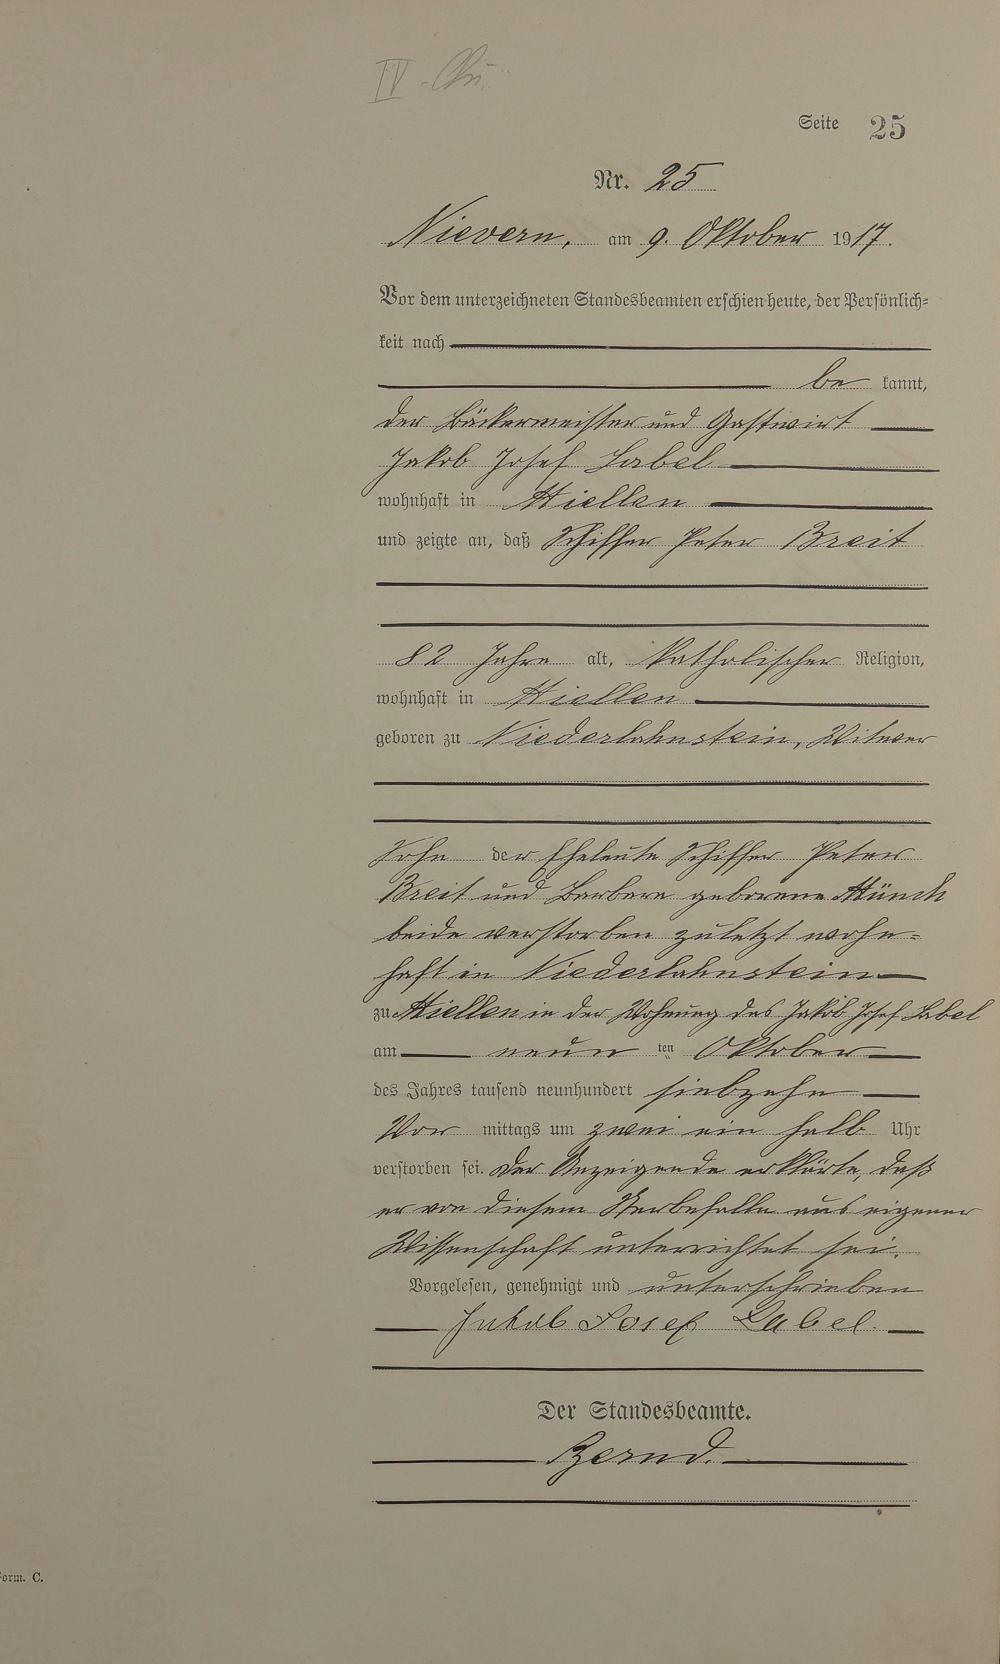 Seite 25
Nr. 25
Nievern, am 9. Oktober 1917.
Vor dem unterzeichneten Standesbeamten erschien heute, der Persönlich=
keit nach
be kannt,
der Bäckermeister und Gastwirt
Jakob Josef Label
wohnhaft in Miellen
und zeigte an, daß Schiffer Peter Breit
82 Jahre alt, katholischer Religion,
wohnhaft in Miellen
geboren zu Niederlahnstein, Witwer
Sohn der Eheleute Schiffer Peter
Breit und Barbara geborene Münch
beide verstorben zuletzt wohn=
haft in Niederlahnstein
zu Miellen in der Wohnung des Jakob Josef Label
am neun ten Oktober
des Jahres tausend neunhundert siebzehn
Vor mittags um zwei ein halb Uhr
verstorben sei. Der Anzeigende erklärte, daß
er von diesem Sterbefalle aus eigener
Wissenschaft unterrichtet sei.
Vorgelesen, genehmigt und unterschrieben
Jakob Josef Label.
Der Standesbeamte.
Bernd.
Form. C.